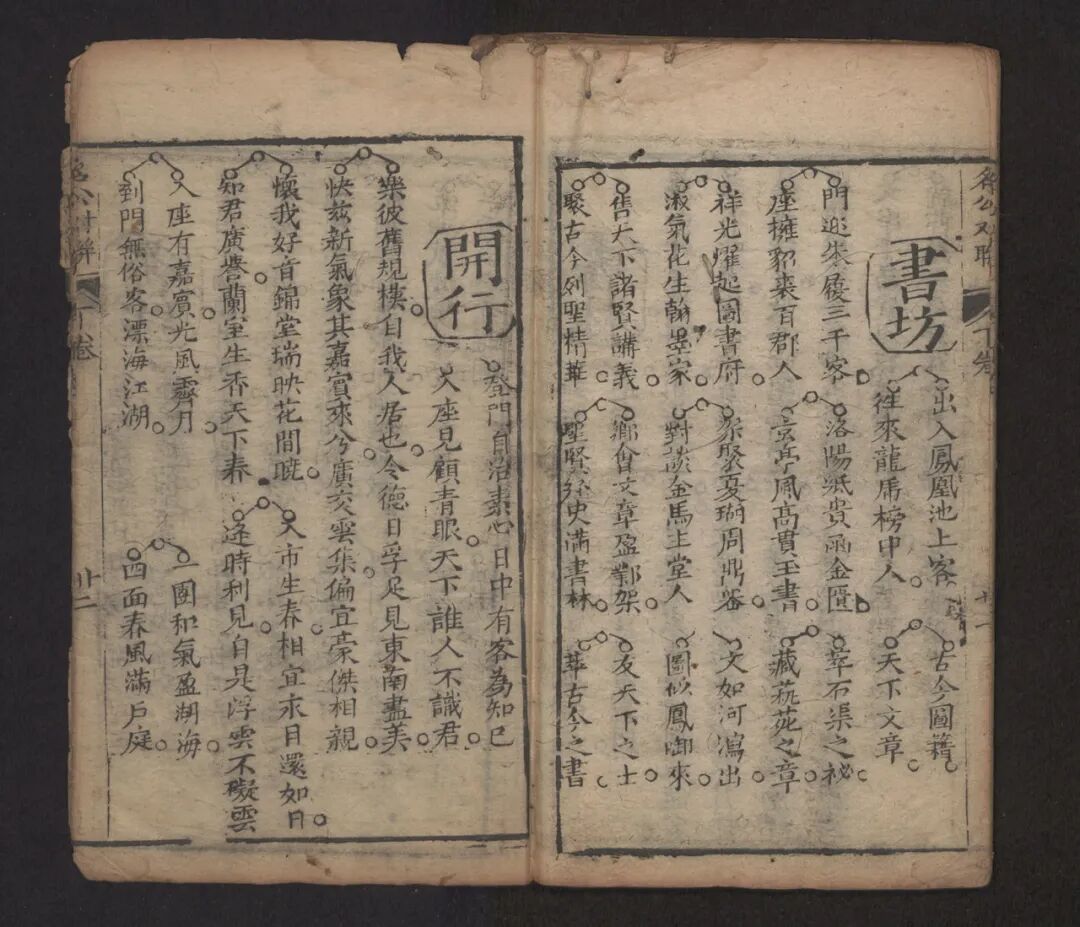 下卷
書坊
出入鳳凰池上客 古今圖籍
往來龍虎榜中人 天下文章
門迎朱履三千客 洛陽紙貴函金匱 萃石渠之祕
座擁貂裘百郡人 玄亭風高貫玉書 藏秇苑之章
祥光耀起圖書府 案聚夏瑚周鼎器 文如河瀉出
淑氣花生翰墨家 對談金馬玉堂人 圖似鳳啣來
售天下諸賢講義 鄉會文章盈鄴架 友天下之士
聚古今列聖精華 聖賢經史滿書林 萃古今之書
開行
登門自洽素心日中有客為知己
入座見顧青眼天下誰人不識君
樂彼舊規模自我人居也令德日孚足見東南盡美
快茲新氣象其嘉賓來兮廣交雲集偏宜豪傑相親
懷我好音錦堂瑞映花間暖 入市生春相宜永日還如日
知君廣譽蘭室生香天下春 逢時利見自是浮雲不礙雲
入座有嘉賓光風霽月 一團和氣盈湖海
到門無俗客漂海江湖 西面春風滿戶庭
公對聯 下卷 廿二